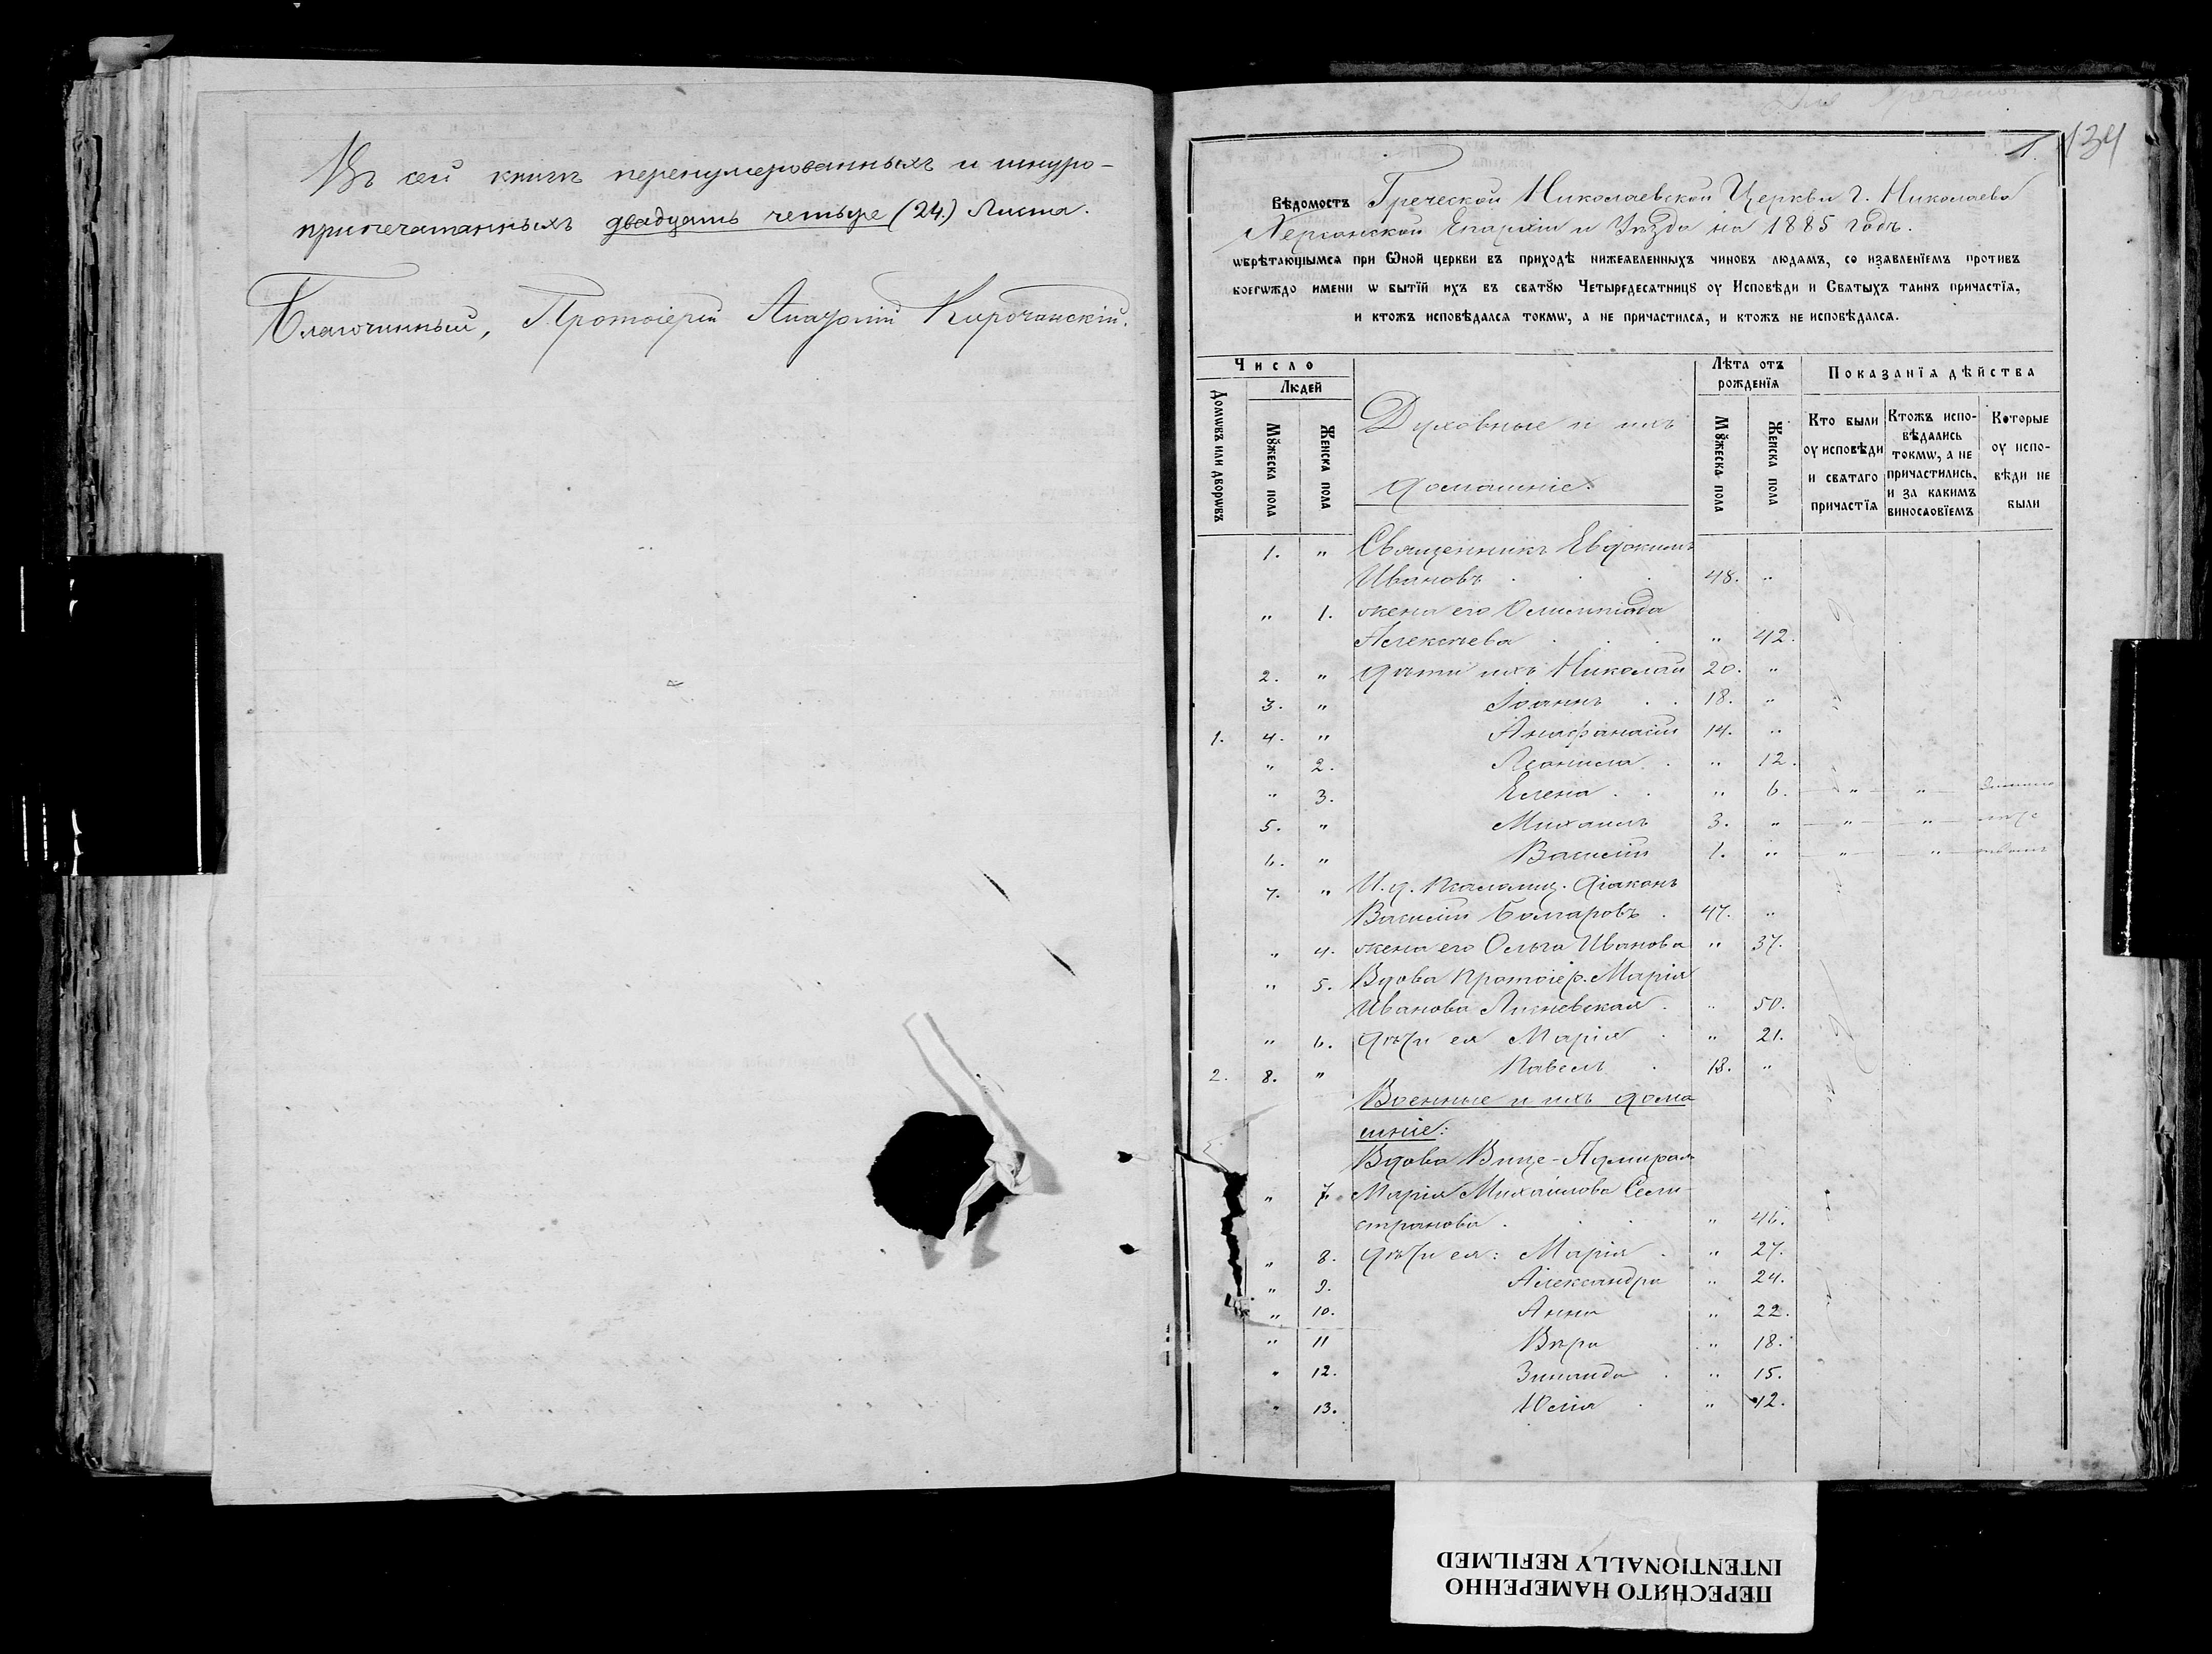 Въ сей книгѣ перенумерованныхъ и шнуро-
припечатанныхъ двадцать четыре (24.) Листа.
Благочинный, Протоіерей Кирочанскій.
1. 134
Вѣдомость Греческой Николаевской Церкви г. Николаева
Херсонской Епархіи и Уѣзда на 1885 годъ.
ѡбрѣтающымся при Ѻной церкви въ приходѣ нижеявленныхъ чиновъ людямъ, со изявленїемъ противъ
коегѡждо имени ѡ бытїй ихъ въ святꙋю Четыредесятницꙋ оу Исповѣди и Святыхъ таинъ причастїя,
и ктожъ исповѣдался токмѡ, а не причастился, и ктожъ не исповѣдался.
Число
Людей
Домѡвъ или дворѡвъ
Мꙋжеска пола
Женска пола
Духовные и ихъ
домашніе.
Лѣта отъ
рожденїя
Мꙋжеска пола
Женска пола
Показанїя дѣйства
Кто были
оу исповѣди
и святаго
причастїя
Ктожъ испо-
вѣдались
токмѡ, а не
причастились,
и за какимъ
винословїемъ
Которые
оу испо-
вѣди не
были
1. " Священникъ Евдокимъ
Ивановъ . . 48. "
" 1. жена его Олимпіада
Алексѣева . . . " 42.
2. " дѣти ихъ Николай 20. "
3. " Іоаннъ . . 18. "
1. 4. " Анафанасій 14. "
" 2. Леонила . " 12.
" 3. Елена . . " 6. " "
5. " Михаилъ 3. " " "
6. " Василій 1. " " "
7. " И. д. псаломщ. Діаконъ
Василій Болгаровъ . 47. "
" 4. жена его Ольга Иванова " 37.
" 5. Вдова Протоіер. Марія
Иванова Лисневская . " 50.
" 6. дѣти ея Марія . " 21.
2. 8. " Павелъ . 18. "
Военные и ихъ дома
шніе:
Вдова Вице-Адмирал
" 7. Марія Михайлова Сели
странова . . . " 46.
" 8. дѣти ея: Марія . " 27.
" 9. Александра " 24.
" 10. Анна " 22.
" 11 Вѣра " 18.
" 12. Зинаида . " 15.
" 13. Юлія . " 12.
ПЕРЕСНЯТО НАМЕРЕННО
INTENTIONALLY REFILMED